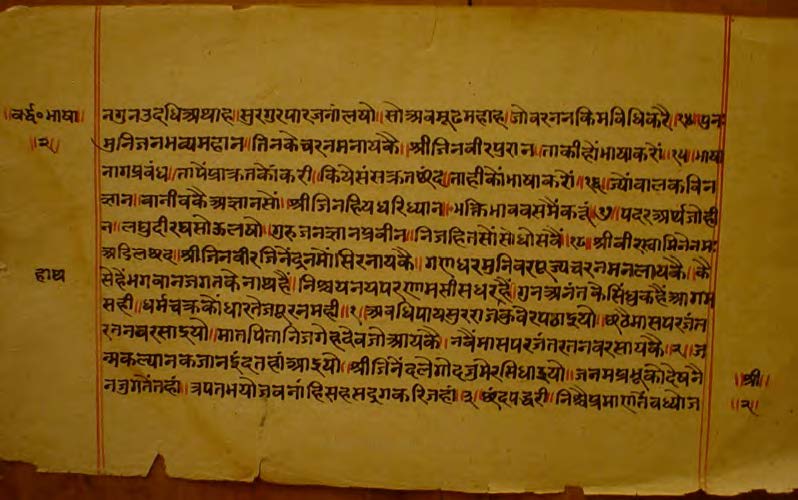 ॥वर्द्ध॰भाषा॥
॥२॥
नगुनउदधिअथाह॥सुरगुरपारजनांलयो॥सोअवमूढमहाह॥जोवरननकिमविधिकरै॥१४॥पुनः
मुनिजनभव्यमहान॥तिनकेचरनमनायकै॥श्रीजिनवीरपुरान॥ताकीहोंभाषाकरों॥१५॥भाषा
नागप्रवंध॥तापेंप्राक्रतकौंकरी॥कियेसंसक्रतछंद॥ताहीकोंभाषाकरों॥१६॥ज्योंवालकविन
ज्ञान॥वानीवकैअज्ञानसों॥श्रीजिनहियधरिध्यान॥भक्तिभाववसमैंकहूं॥१७॥पदरअर्थजोही
न॥लघुदीरघसोऊलषो॥गुरुजनज्ञानप्रवीन॥निजहितसोंसोधोसवैं॥१८॥श्रीवीरस्वामिनेनमः
अडिलछंद॥श्रीजिनवीरजिनेंद्रनमोंसिरनायकै॥गणधरमुनिवरपूज्यचरनमनलायकै॥कै
सेहैंभगवानजगतकेनाथहैं॥निश्चयनयपरणमसीसधरहैं॥गुनअनंतकेसिंधुकहैंआगम
सही॥धर्मचक्रकोंधारतेजपूरनमही॥१॥अवधिपायसुरराजकुवेरपठाइयो॥छठैमासपरजंत
रतनवरसाइयो॥मातपितानिजगेहदेवजोआयकै॥नवैंमासपरजंतरतनवरसायकै॥२॥ज
न्मकल्यानकजानइंदतहांआइयो॥श्रीजिनेंदलेगोदजुमेरसिधाइयो॥जनमप्रभूकोदेषनै
नजुगतैंतहां॥त्रपतभयोजवनांहिसहसद्रगकरिजहां॥३॥छंदपद्धरी॥निश्चैप्रमाणतैवध्योज
॥श्री॥
॥२॥